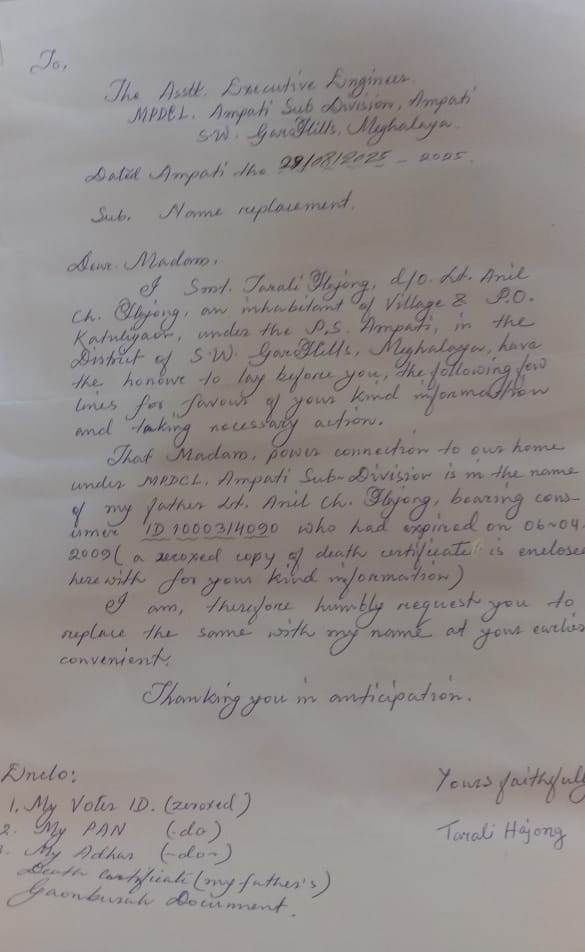 To,
The Asstt. Executive Engineer
MPDCL. Ampati Sub Division, Ampati
S.W. Garo Hills, Meghalaya.
Dated Ampati the 28/08/2025 - 2025.
Sub. Name replacement.
Dear Madam,
I Smt. Tarali Hajong, d/o. Lt. Anil
Ch. Hajong, an inhabitent of Village & P.O.
under the P.S. Ampati, in the
District of S.W. Garo Hills, Meghalaya, have
the honour to lay before you, the following few
lines for favour of your kind information
and taking necessary action.
That Madam, power connection to our home
under MPDCL, Ampati Sub-Division is in the name
of my father Lt. Anil Ch. Hajong, bearing cons-
umer ID 1000314090 who had expired on 06-04
2009 ( a xeroxed copy of death certificate is enclose
herewith for your kind information)
I am, therefore humbly request you to
replace the same with my name at your earlies
convenient.
Thanking you in anticipation.
Enclo:
1. My Voter ID. (zeroxed)
2. My PAN (-do)
3. My Adhar (-do-)
Death certificate (my father's)
Gaonburah Document.
Yours faithfull
Tarali Hajong